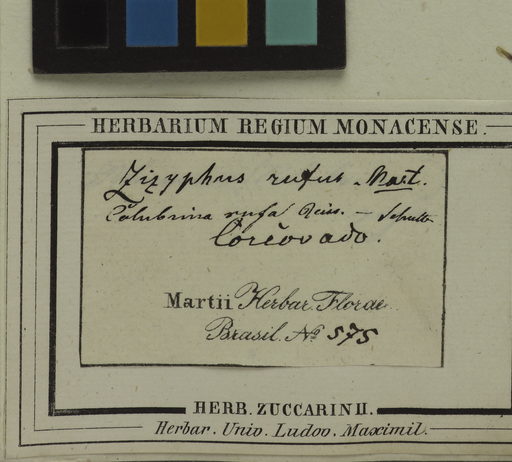 HERBARIUM REGIUM MONACENSE.
Zizyphus rufus. Mart.
Colubrina rufa Reiss. — Schultz
Corcovado.
Martii Herbar. Florae
Brasil. No 575
HERB. ZUCCARINII.
Herbar. Univ. Ludov. Maximil.